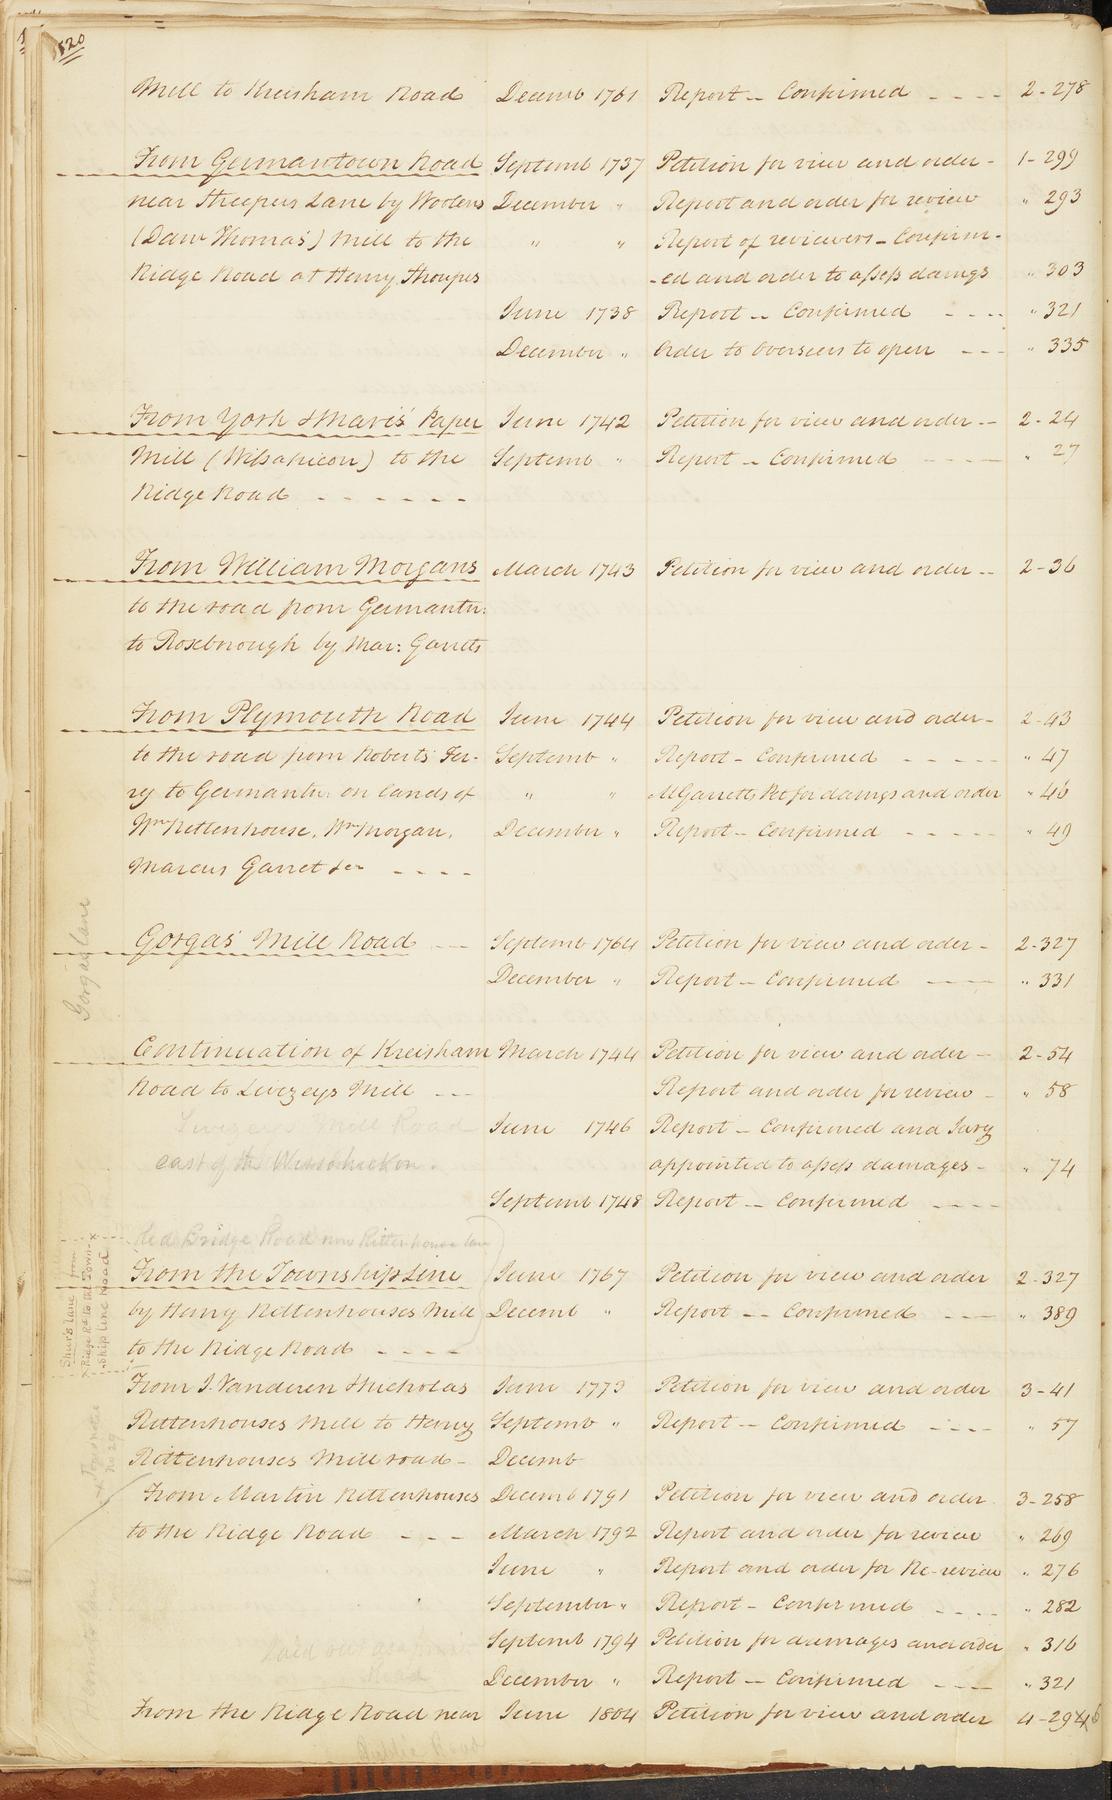 820
Mill to Kreisham Road Decemb 1761 Report -- Confirmed - - - - 2-278
From Germantown Road Septemb 1737 Petition for view and order - 1-299
near Streepers Lane by Wooten's December " Report and order for review " 293
(Danl Thomas') Mill to the " " Report of reviewers - Confirm-
Ridge Road at Henry Stroupes -ed and order to assess damgs " 303
June 1738 Report -- Confirmed - - - - " 321
December " Order to Overseers to open - - - " 335
From York & Davis' Paper June 1742 Petition for view and order -- 2-24
Mill ( ) to the Septemb " Report -- Confirmed - - - - " 27
Ridge Road - - - - - - -
From William Morgans March 1743 Petition for view and order -- 2-36
to the road from Germantn:
to Roxborough by Mar: Garretts
From Plymouth Road June 1744 Petition for view and order - 2-43
to the road from Roberts' Fer- Septemb " Report - Confirmed - - - - - " 47
ry to Germantn: on lands of " " M Garretts Pet for damgs and order " 46
Wm Rittenhouse, Wm Morgan, December " Report -- Confirmed - - - - - " 49
Marcus Garret &c - - - -
Gorgas lane
Gorgas' Mill Road - - - Septemb 1764 Petition for view and order - 2-327
December " Report -- Confirmed - - - - " 331
Continuation of Kreisham March 1744 Petition for view and order - 2-54
Road to Livezeys Mill - - - Report and order for review - " 58
Livezey's Mill Road June 1746 Report - Confirmed and Jury
east of the Wissahickon. appointed to assess damages - " 74
Septemb 1748 Report -- Confirmed - - - -
Red Bridge Road now Rittenhouse lane
Shur's lane from
Ridge Rd to the Town-
ship line Road
From the Township Line June 1767 Petition for view and order 2-327
by Henry Rittenhouses Mill Decemb " Report -- Confirmed - - - " 389
to the Ridge Road - - - -
From J. Vanderen & Nicholas June 1773 Petition for view and order 3-41
Rittenhouses Mill to Henry Septemb " Report -- Confirmed - - - - " 57
Rittenhouses Mill road - Decemb
From Martin Rittenhouses Decemb 1791 Petition for view and order 3-258
to the Ridge Road - - - March 1792 Report and order for review " 269
June " Report and order for Re-review " 276
September " Report - Confirmed - - - - " 282
Laid out Septemb 1794 Petition for damages and order " 316
Road December " Report -- Confirmed - - - - " 321
From the Ridge Road near June 1804 Petition for view and order 4-29